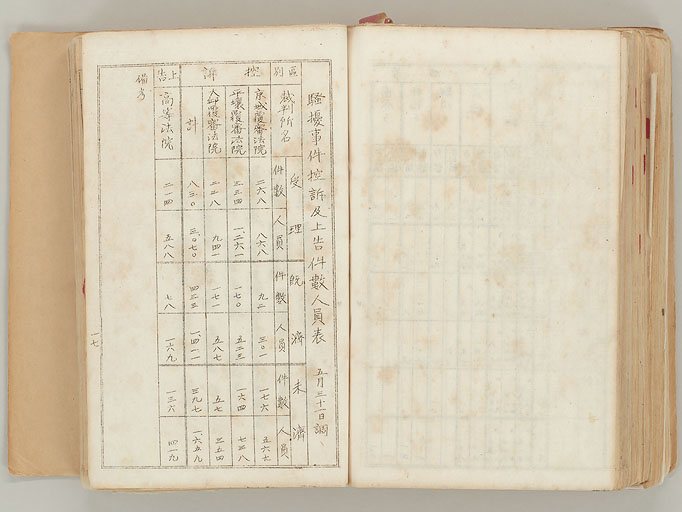 騷擾事件控訴及上告件數人員表 五月三十一日調
區別 受理 既濟 未濟
裁判所名 件數 人員 件數 人員 件數 人員
控訴
京城覆審法院 二六八 八六八 九二 三〇一 一七六 五六七
平壤覆審法院 三三四 一、二六一 一七〇 五二三 一六四 七三八
大邱覆審法院 二二八 九四一 一七一 五八七 五七 三五四
計 八三〇 三、〇七〇 四三三 一、四一一 三九七 一、六五九
上告
高等法院 二一四 五八八 七八 一六九 一三六 四一九
備考
一七